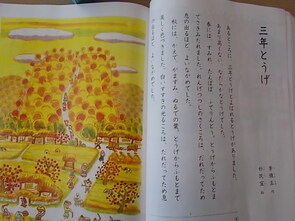 三年とうげ
李錦玉 作
朴民宜 絵
あるところに、三年とうげとよばれるとうげがありました。
あまり高くない、なだらかなとうげでした。
春には、すみれ、たんぽぽ、ふでりんどう。とうげからふもとま
でさきみだれました。れんげつつじのさくころは、だれだってため
息の出るほど、よいながめでした。
秋には、かえで、がまずみ、ぬるでの葉。とうげからふもとまで
美しく色づきました。白いすすきの光るころは、だれだってため息
の出るほど、よいながめでした。